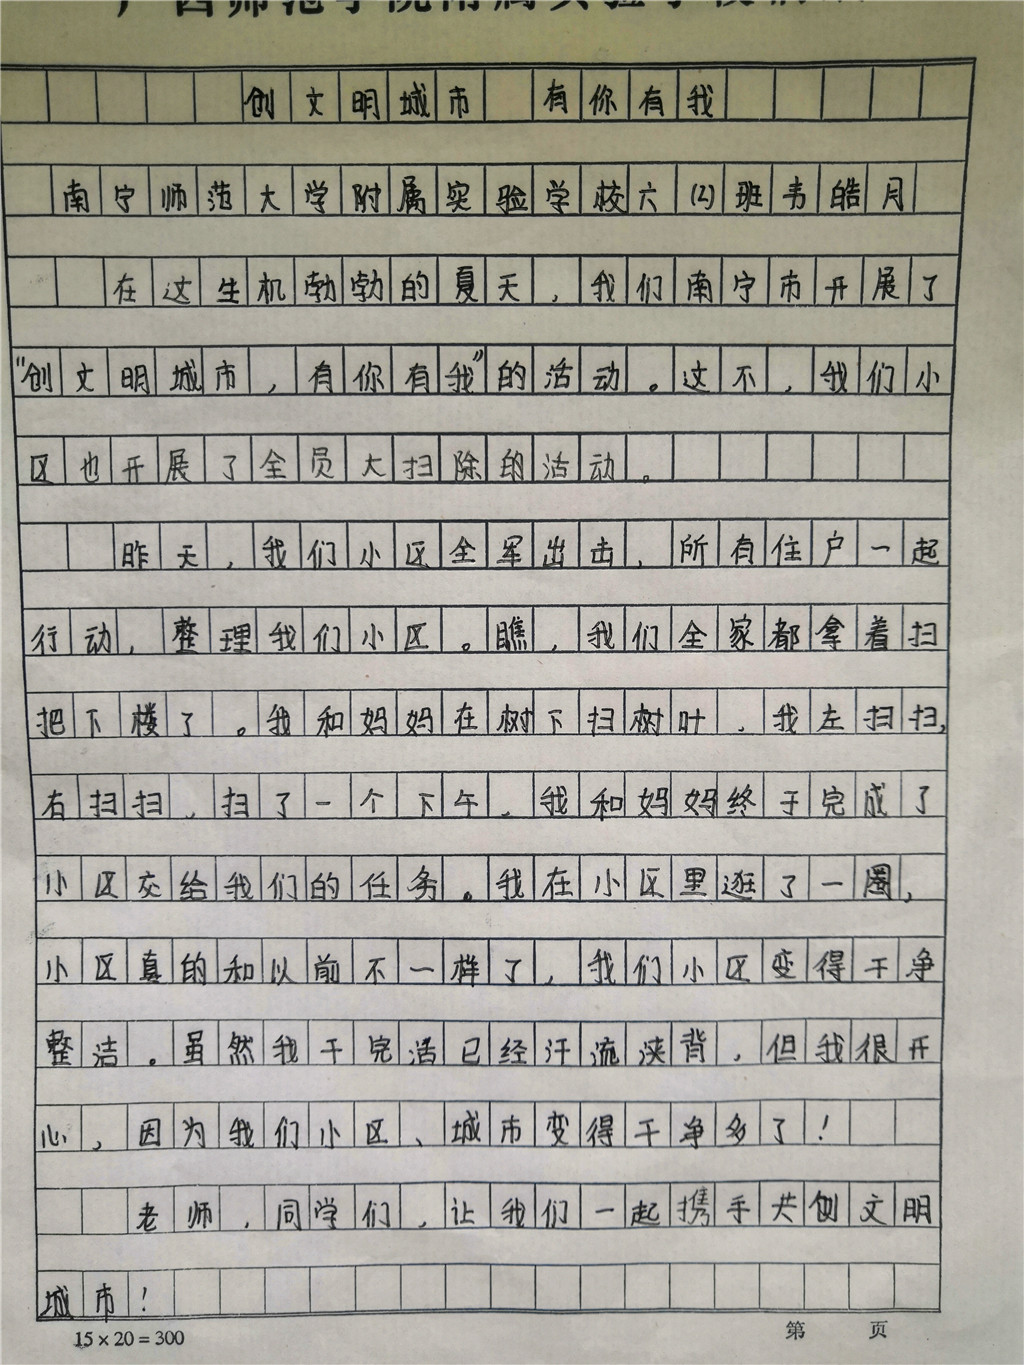 创文明城市 有你有我
南宁师范大学附属实验学校六(2)班韦皓月
在这生机勃勃的夏天，我们南宁市开展了
“创文明城市，有你有我”的活动。这不，我们小
区也开展了全员大扫除的活动。
昨天，我们小区全军出击，所有住户一起
行动，整理我们小区。瞧，我们全家都拿着扫
把下楼了。我和妈妈在树下扫树叶，我左扫扫，
右扫扫，扫了一个下午，我和妈妈终于完成了
小区交给我们的任务。我在小区里逛了一圈，
小区真的和以前不一样了，我们小区变得干净
整洁。虽然我干完活已经汗流浃背，但我很开
心，因为我们小区、城市变得干净多了！
老师，同学们，让我们一起携手共创文明
城市！
15×20=300
第 页